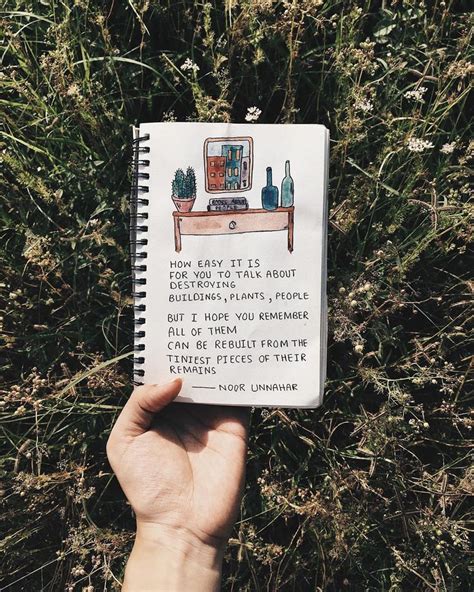 BOOKS ABOUT
PEOPLE
HOW EASY IT IS
FOR YOU TO TALK ABOUT
DESTROYING
BUILDINGS, PLANTS, PEOPLE
BUT I HOPE YOU REMEMBER
ALL OF THEM
CAN BE REBUILT FROM THE
TINIEST PIECES OF THEIR
REMAINS
— NOOR UNNAHAR